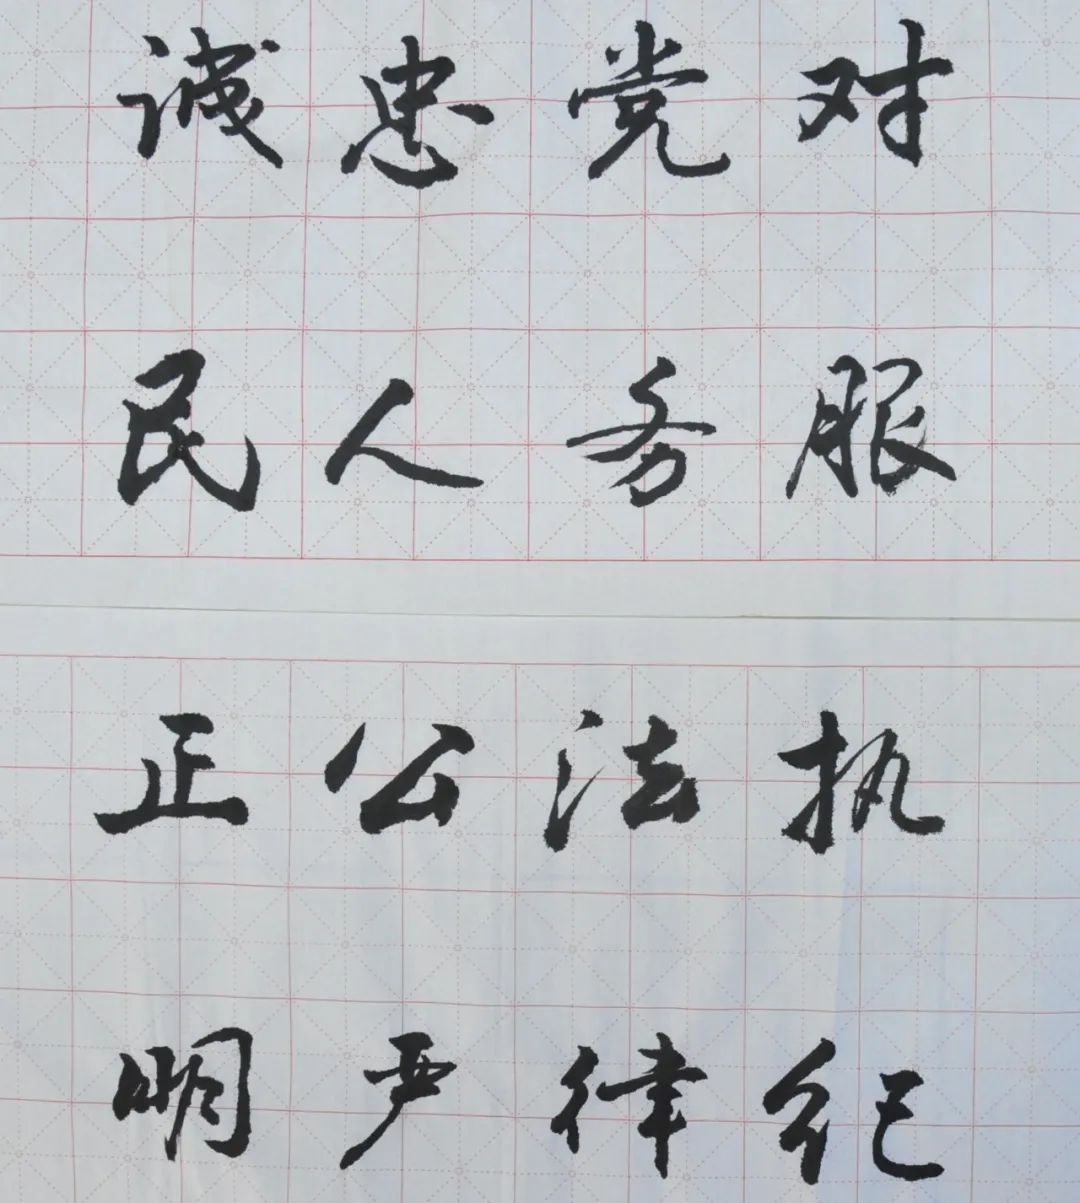 对党忠诚
服务人民
执法公正
纪律严明